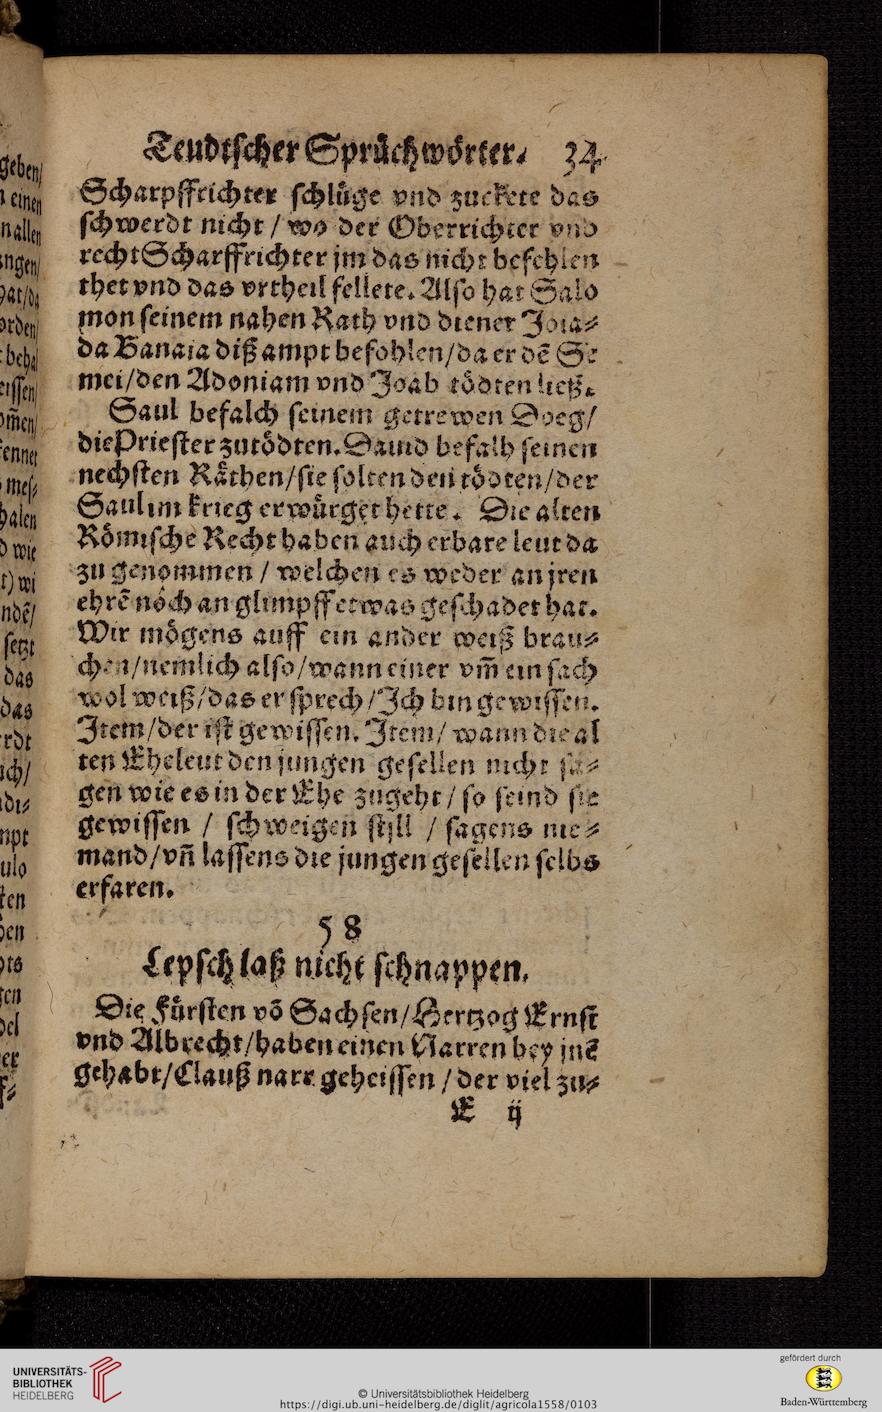 Teudtscher Sprüchwörter. 34.
Scharpffrichter schlüge vnd zuckete das
schwerdt nicht / wo der Oberrichter vnd
recht Scharffrichter jm das nicht befehlen
thet vnd das vrtheil fellete. Also hat Salo
mon seinem nahen Rath vnd diener Joia⸗
da Banaia diß ampt befohlen/da er dē Se
mei/den Adoniam vnd Joab tödten ließ.
Saul befalch seinem getrewen Doeg/
die Priester zutödten. Dauid befalh seinen
nechsten Räthen/sie solten den tödten/der
Saul im krieg erwürget hette. Die alten
Römische Recht haben auch erbare leut da
zu genommen / welchen es weder an jren
ehrē noch an glimpff etwas geschadet hat.
Wir mögens auff ein ander weiß brau⸗
chen/nemlich also/wann einer vm̄ ein sach
wol weiß/das er sprech/Ich bin gewissen.
Item/der ist gewissen. Item/ wann die al
ten Eheleut den jungen gesellen nicht sa⸗
gen wie es in der Ehe zugeht / so seind sie
gewissen / schweigen still / sagens nie⸗
mand/vn̄ lassens die jungen gesellen selbs
erfaren.
58
Lepsch laß nicht schnappen.
Die Fürsten vō Sachsen/Hertzog Ernst
vnd Albrecht/haben einen Narren bey jnē
gehabt/Clauß narr geheissen / der viel zu⸗
E ij
geben/
einen
nallen
ngen/
orden/
eissen/
om̄en/
kennet
mes⸗
halen
wie
wi
setzt
das
das
UNIVERSITÄTS-
BIBLIOTHEK
HEIDELBERG
© Universitätsbibliothek Heidelberg
https://digi.ub.uni-heidelberg.de/diglit/agricola1558/0103
gefördert durch
Baden-Württemberg